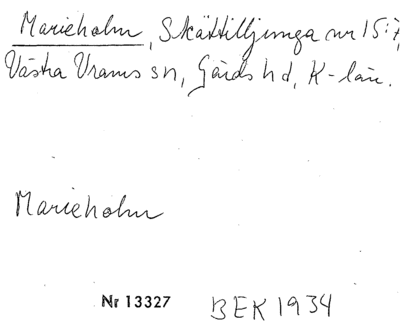 Marieholm, Skättilljunga nr 15:7,
Västra Vrams sn, Gärds hd, K-län.
Marieholm
Nr 13327 BEK 1934